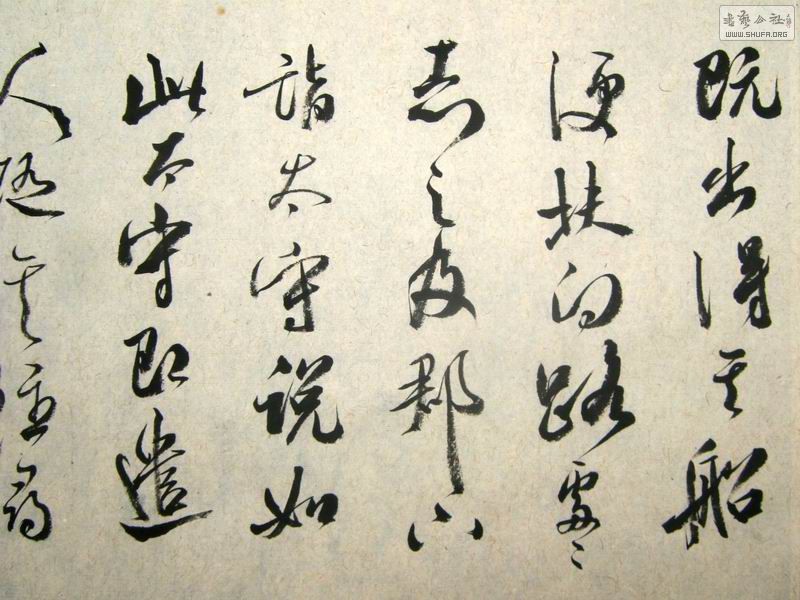 既出得其船
便扶向路處〻
志之及郡下
詣太守説如
此太守即遣
人隨其往尋
書藝公社
WWW.SHUFA.ORG